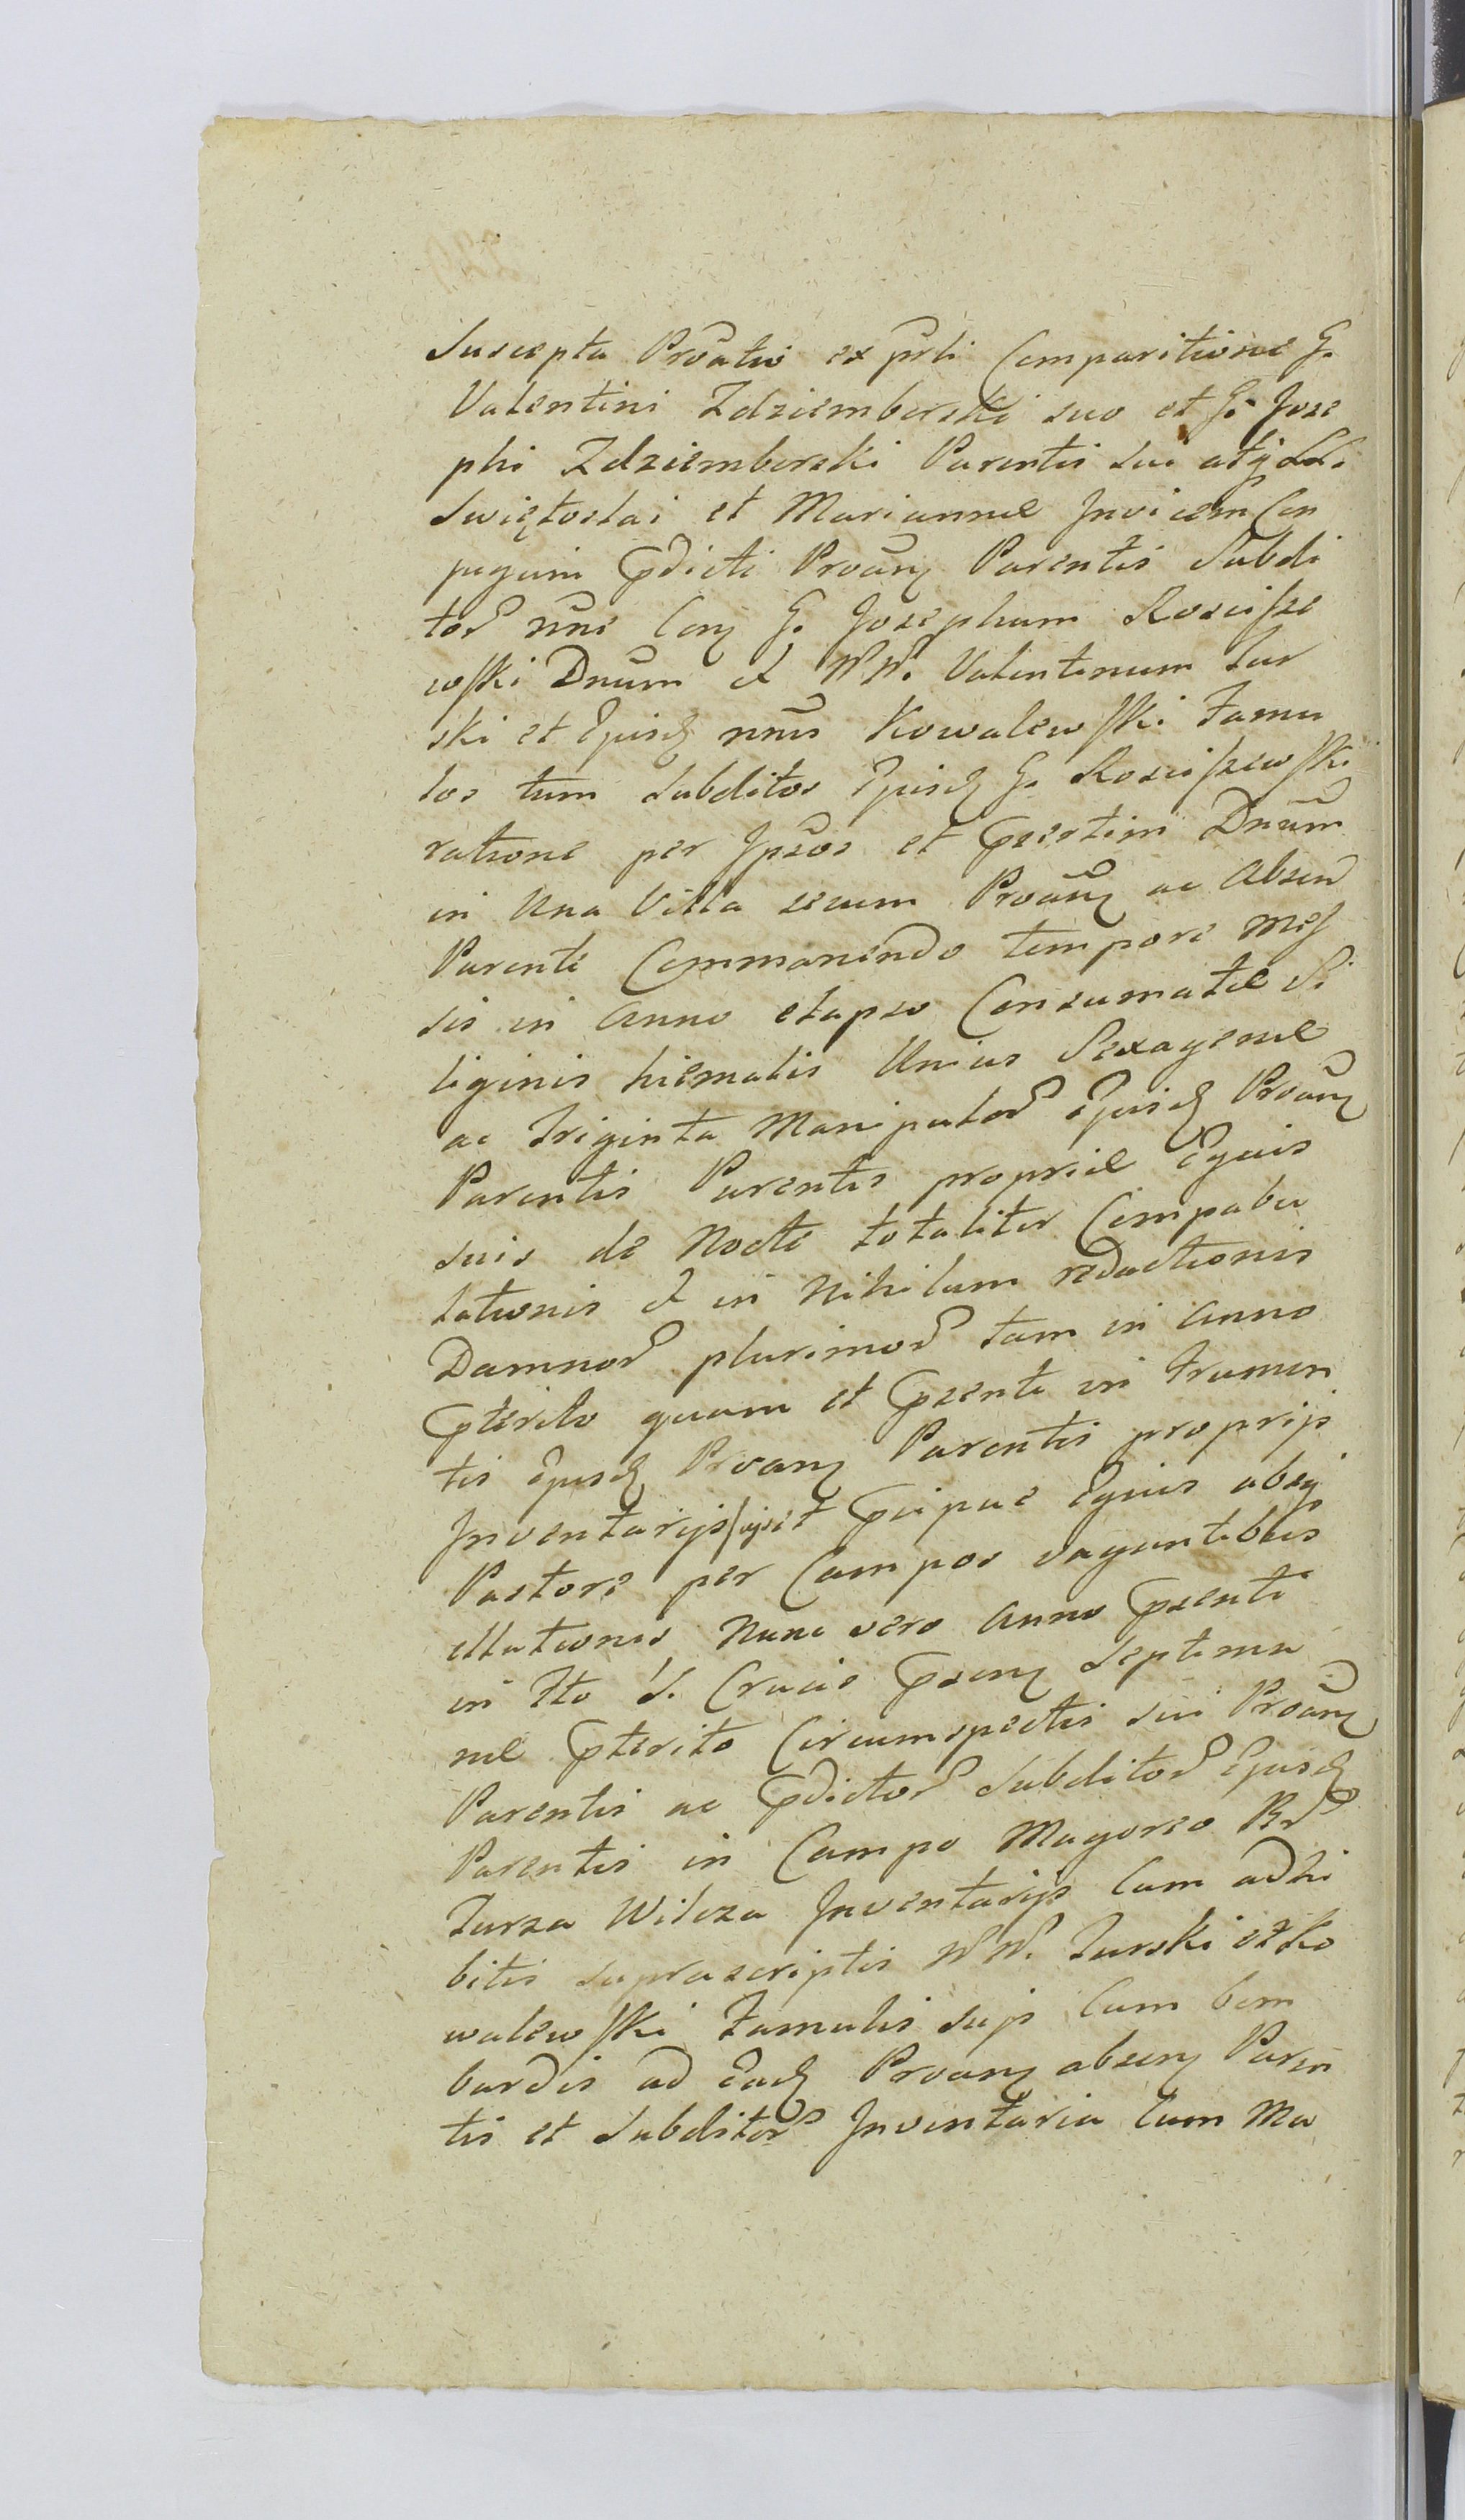 Suscepta Proātio ex prli Comparitione G.
Valentini Zdziemberski suo et G. Jose
phi Zdziemberski Parentis sui atq LL.
Swiętoslai et Mariannæ Invicem Con
jugum pdicti Proanq Parentis Subdi
tor nne Conq G. Josephum Rosciſze
wſki Dnum & WW. Valentinum Tur
ski et Ejusd nnis Kowalewſki Famu
los tum Subditos Ejusd G. Rosciſzewſki
ratione per Ipsos et psertim Dnum
in Una Villa secum Proanq ac Absen
Parente Commanendo tempore Meſ
sis in Anno elapso Consumatæ Si
liginis hiemalis Unius Sexagenæ
ac Triginta Manipulor Ejusd Proanq
Parentis Parentis propriæ Equis
suis de Nocte totaliter Compabu
lationis & in Nihilum redactionis
Damnor plurimor tam in Anno
pterito quam et psente in Frumen
tis Ejusd Proanq Parentis proprijs
Inventarijs et pcipue Equis absq
Pastore per Campos vagantibus
illationis Nunc vero Anno psente
in Fto S. Crucis psenq Septima
næ pterito Circumspectis sui Proanq
Parentis ac pdictor Subditor Ejusd
Parentis in Campo Magorso Rd
Turza Wilcza Inventarijs Cum adhi
bitis suprascriptis WW. Turski et Ko
walewſki Famulis suis Cum bom
bardis ad Eadq Proanq absenq Paren
tis et Subditor Inventaria Cum Ma